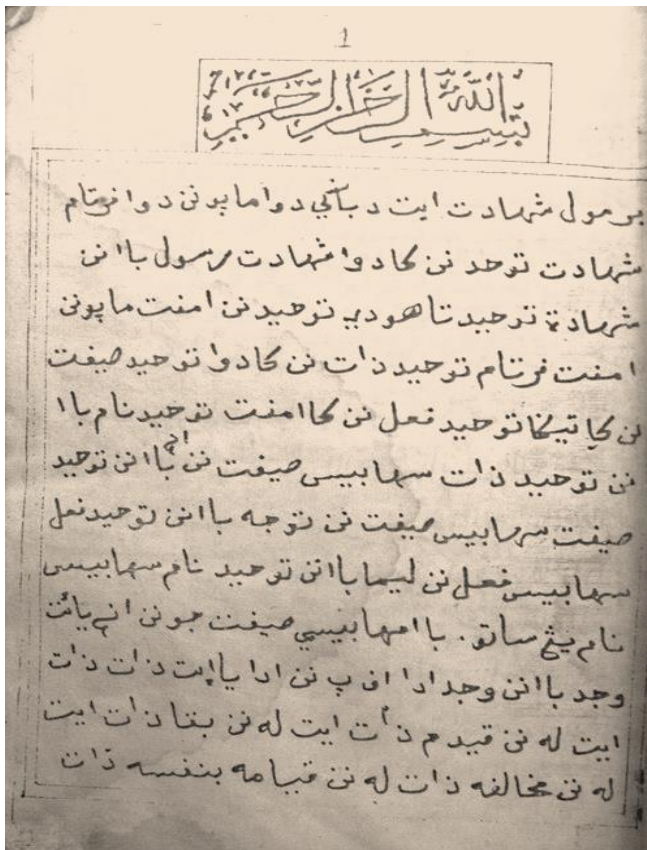 1
بسم الله الرحمن الرحيم
برمول شهادت ايت دباڬي دوا مابرنن دوا فرتام
شهادت توحد نن كادوا شهادت رسول باانن
شهادة توحيد تا هودي توحيدنن امفت ماپونن
امفت فرتام توحيد ذات نن كادوا توحيد صيفت
نن كاتيكا توحيد فعل نن كاامفت توحيد نام باا
نن توحيد ذات سهابيسي صيفت نن باانن توحيد
صيفت سهابيس صيفت نن توجه باانن توحيد فعل
سهابيس فعل نن ليما باانن توحيد نام سهابيسى
نام يڠ ساتو. باامهابيسي صيفت جونن
وجد باانن وجد ادا اف ب نن ادا يا ايت ذات ذات
ايت له نن قيدم ذات ايت له نن بقا ذات ايت
له نن مخالفه ذات له نن قيامه بنفسه ذات